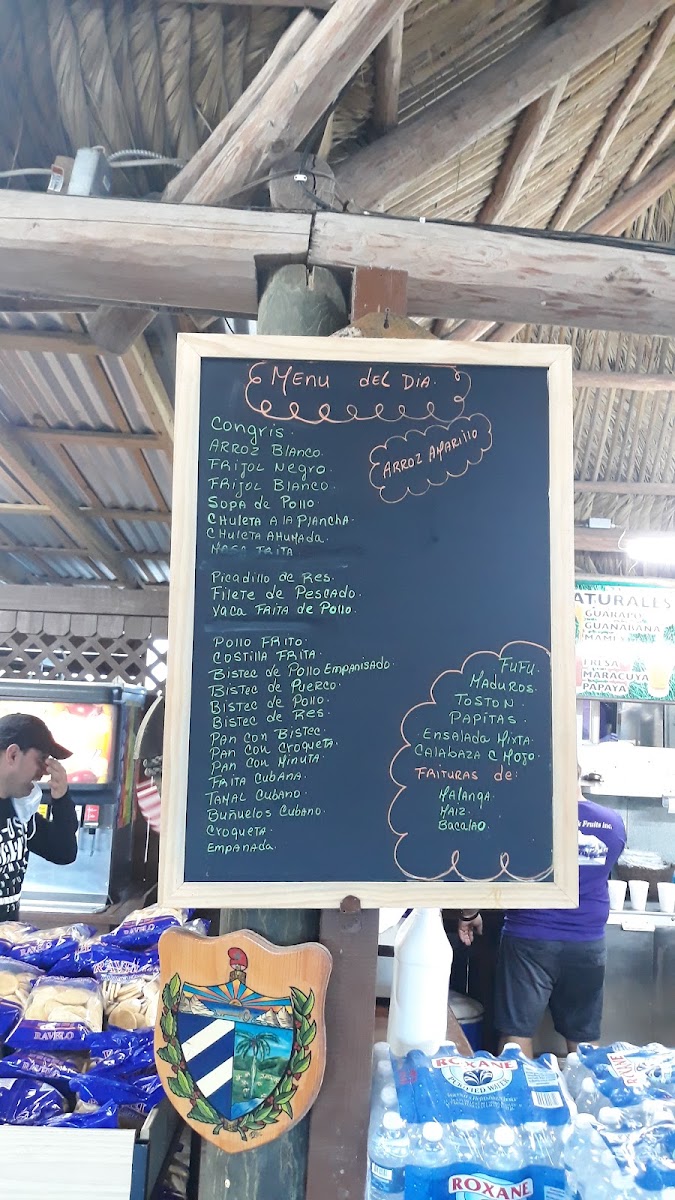 MENU DEL DIA.
ARROZ AMARILLO
Congris.
ARROZ BLANCO.
FRIJOL NEGRO.
FRIJOL BLANCO.
SOPA DE POLLO.
CHULETA A LA PLANCHA.
CHULETA AHUMADA.
MASA FRITA.
Picadillo de Res.
Filete de Pescado.
Vaca FRITA de Pollo.
Pollo FRITO.
COSTILLA FRITA.
BISTEC de Pollo EMPANISADO.
BISTEC de PUERCO.
BISTEC de Pollo.
BISTEC de RES.
PAN CON BISTEC.
PAN CON CROQUETA.
PAN CON MINUTA.
FRITA CUBANA.
TAMAL CUBANO.
BUÑUELOS CUBANO.
CROQUETA.
EMPANADA.
FUFU.
MADUROS.
TOSTON.
PAPITAS.
ENSALADA MIXTA.
CALABAZA C MOJO.
FRITURAS de:
MALANGA.
MAIZ.
BACALAO.
ATURALES
GUARAPO
GUANABANA
MAMEY
FRESA
MARACUYA
PAPAYA
Fruits inc.
RAVELO
RAVELO
ROXANE
WATER
ROXANE